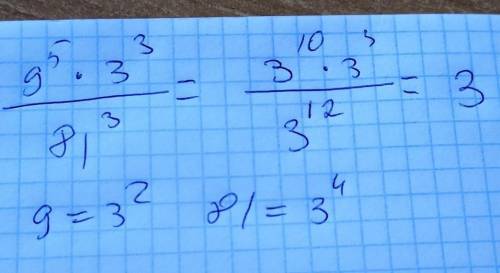 9⁵ · 3³ / 81³ = 3¹⁰ · 3³ / 3¹² = 3
9 = 3² 81 = 3⁴